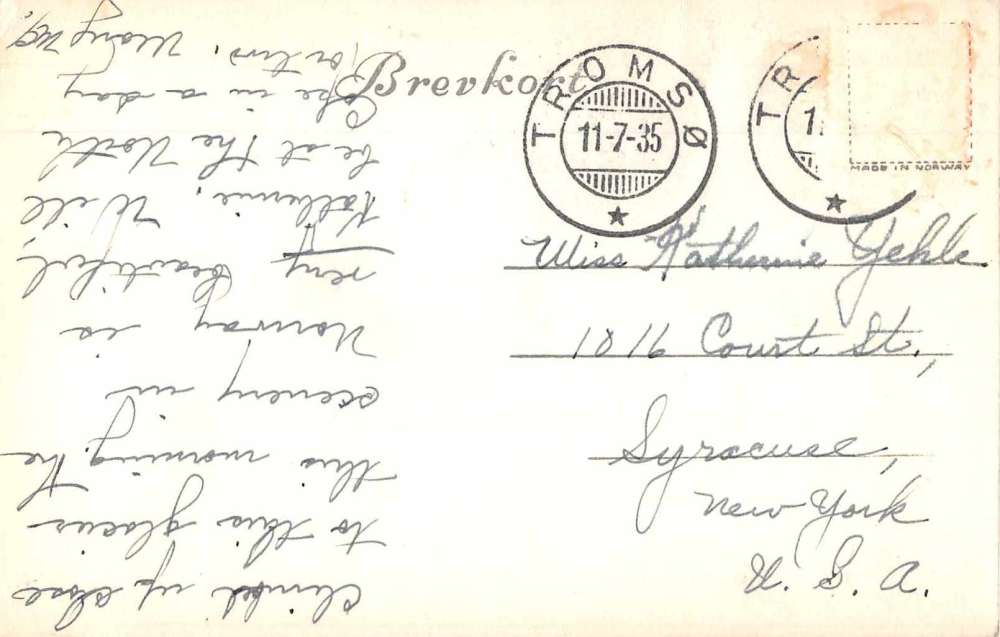 Brevkort
TROMSØ
11-7-35
TR
1
MADE IN NORWAY
Miss Katherine Yehle
1816 Court St.,
Syracuse,
New York
U. S. A.
Climbed up close
to this glacier
this morning. The
scenery in
Norway is
very beautiful,
Katherine. Will
be at the North
Cape in a day
or two. Mary